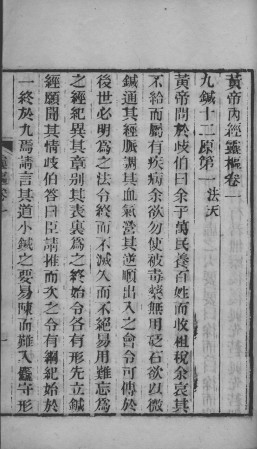 黃帝內經靈樞卷一
九鍼十二原第一法天
黃帝問於歧伯曰余子萬民養百姓而收租稅余哀其
不給而屬有疾病余欲勿使被毒藥無用砭石欲以微
鍼通其經脈調其血氣營其逆順出入之會令可傳於
後世必明為之法令終而不滅久而不絕易用難忘為
之經紀異其章別其表裏為之終始令各有形先立鍼
經願聞其情歧伯答曰臣請推而次之令有綱紀始於
一終於九焉請言其道小鍼之要易陳而難入麤守形